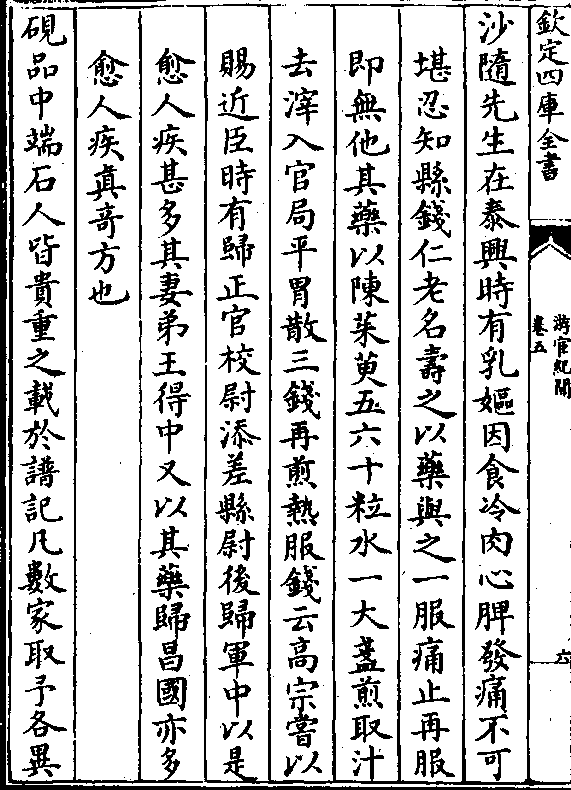 欽定四庫全書
游宦紀聞
卷五
六
沙隨先生在泰興時有乳嫗因食冷肉心脾發痛不可
堪忍知縣錢仁老名壽之以藥與之一服痛止再服
即無他其藥以陳茱萸五六十粒水一大盞煎取汁
去滓入官局平胃散三錢再煎熱服錢云高宗嘗以
賜近臣時有歸正官校尉添差縣尉後歸軍中以是
愈人疾甚多其妻弟王得中又以其藥歸昌國亦多
愈人疾真奇方也
硯品中端石人皆貴重之載於譜記凡數家取予各異